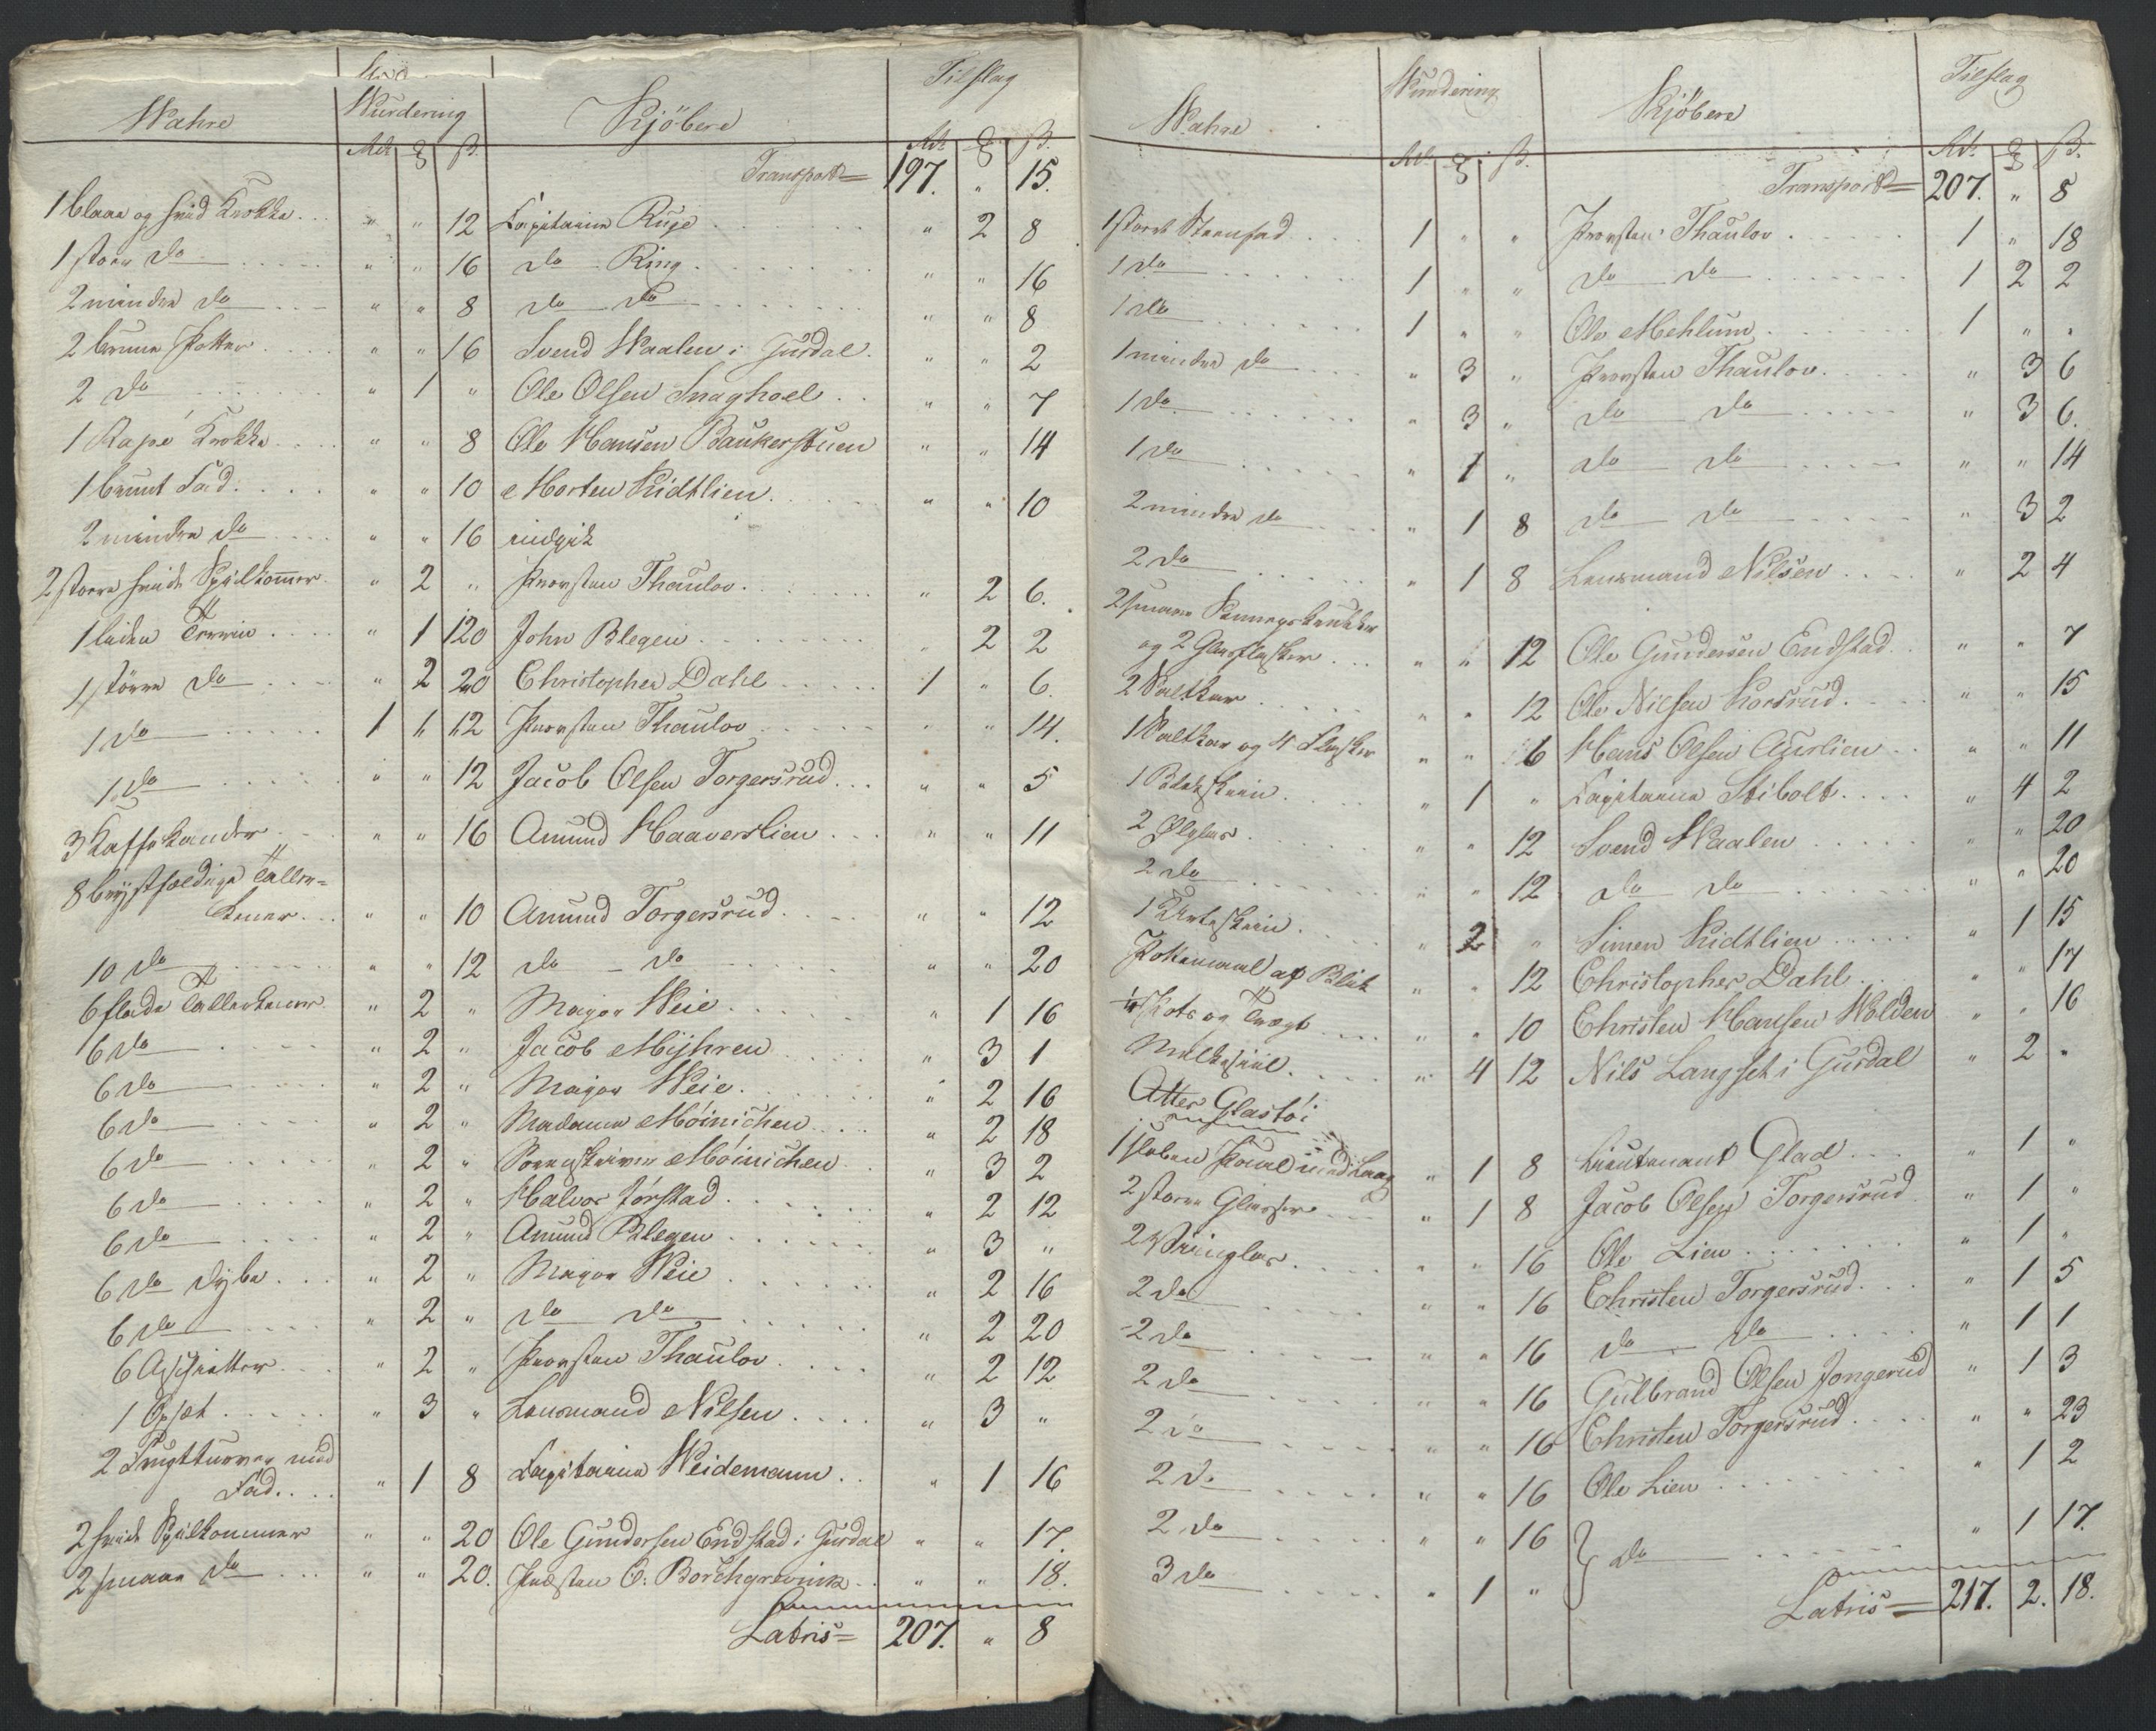 Wahre Wurdering Kjöbere Tilslag
Rdr. ℔ ß. Rdr. ℔ ß.
Transport = 197. " 15.
1 blaae og hvid Krokke . . . " " 12 Capitaine Ruge . . . " 2 8
1 større do . . . " " 16 do Ring . . . " " 16
2 mindre do . . . " " 8 do do . . . " " 8
2 brune Potter . . . " " 16 Svend Waalen i Gusdal . " " 2
2 do . . . " 1 " Ole Olsen Snaghoel . . " " 7
1 Rapé Krokke . . . " " 8 Ole Hansen Baukerstuen " " 14
1 bruunt Fad . . . " " 10 Morten Kidtlien . . . " " 10
2 mindre do . . . " " 16 indgik
2 store hvide Spølkommer . " 2 " Provsten Thaulov . . . " 2 6.
1 liden Terrin . . . " 1 120 John Blegen . . . " 2 2
1 større do . . . " 2 20 Christopher Dahl . . . 1 " 6.
1 do . . . 1 1 12 Provsten Thaulov . . . " " 14.
1 do . . . " " 12 Jacob Olsen Torgersrud . . . " " 5
3 Kaffekander . . . " " 16 Amund Haaverslien . . . " " 11
8 brystfældige Taller=
kener . . . " " 10 Amund Torgersrud . . . " " 12
10 do . . . " " 12 do – do . . . " " 20
6 flade Tallerkener . " 2 " Major Weie . . . " 1 16
6 do . . . " 2 " Jacob Myhren . . . " 3 1
6 do . . . " 2 " Major Weie . . . " 2 16
6 do . . . " 2 " Madame Möinichen . . . " 2 18
6 do . . . " 2 " Sorenskriver Möinichen . " 3 2
6 do . . . " 2 " Halvor Jörstad . . . " 2 12
6 do . . . " 2 " Amund Blegen . . . " 3 "
6 do dybe . . . " 2 " Major Weie . . . " 2 16
6 do . . . " 2 " do do . . . " 2 20
6 Assietter . . . " 2 " Provsten Thaulov . . . " 2 12
1 Opsat . . . " 3 " Lensmand Nilsen . . . " 3 "
2 Frugtkurver med
Fad . . . " 1 8 Capitaine Weidemann . . " 1 16
2 hvide Spølkommer " " 20 Ole Gundersen Endstad i Gusdal " " 17.
2 smaae do . . . " " 20. Præsten O: Borchgrevink . . " " 18.
Latris = 207. " 8
Wahre Wurdering Kjöbere Tilslag
Rdr. ℔ ß. Rdr. ℔ ß.
Transport = 207. " 8
1 stort Steenfad . . . 1 " " Provsten Thaulov . . . 1 " 18
1 do . . . 1 " " do do . . . 1 2 2
1 do . . . 1 " " Ole Mehlum . . . 1 " "
1 mindre do . . . " 3 " Provsten Thaulov . . . " 3 6
1 do . . . " 3 " do do . . . " 3 6.
1 do . . . " 1 " do do . . . " " 14
2 mindre do . . . " 1 8 do do . . . " 3 2
2 do . . . " 1 8 Lensmand Nilsen . . . " 2 4
2 smaae Sennepskrukker
og 2 Glasflasker . . . " " 12 Ole Gundersen Endstad . . " " 7
2 Saltkar . . . " " 12 Ole Nilsen Korsrud . . . " " 15
1 Saltkar og 4 Flasker " " 16 Hans Olsen Aurlien . . " " 11
1 Potskein . . . " 1 " Capitaine Stibolt . . . " 4 2
2 Ølglas . . . " " 12 Svend Waalen . . . " " 20
2 do . . . " " 12 do do . . . " " 20
1 . . . " 2 " Simen Kidtlien . . . " 1 15
Pottemaal af Blik " " 12 Christopher Dahl . . " " 17
1/2 Pots og Tragt . . . " " 10 Christen Hansen Wolden " " 16
Melkesiil . . . " 4 12 Nils Langset i Gusdal " 2 "
Atter Glastöi
1 sleben Pocal med Laag " 1 8 Lieutenant Glad . . . " 1 "
2 større Glasser . . . " 1 8 Jacob Olsen Torgersrud " 1 "
2 Viinglas . . . " " 16 Ole Lien . . . " 1 "
2 do . . . " " 16 Christen Torgersrud . . . " 1 5
2 do . . . " " 16 do do . . . " 1 1
2 do . . . " " 16 Gulbrand Olsen Jongerud " 1 3
2 do . . . " " 16 Christen Torgersrud . . . " " 23
2 do . . . " " 16 Ole Lien . . . " 1 2
2 do . . . " " 16 } do . . . " 1 17.
3 do . . . " 1 "
Latris = 217. 2. 18.